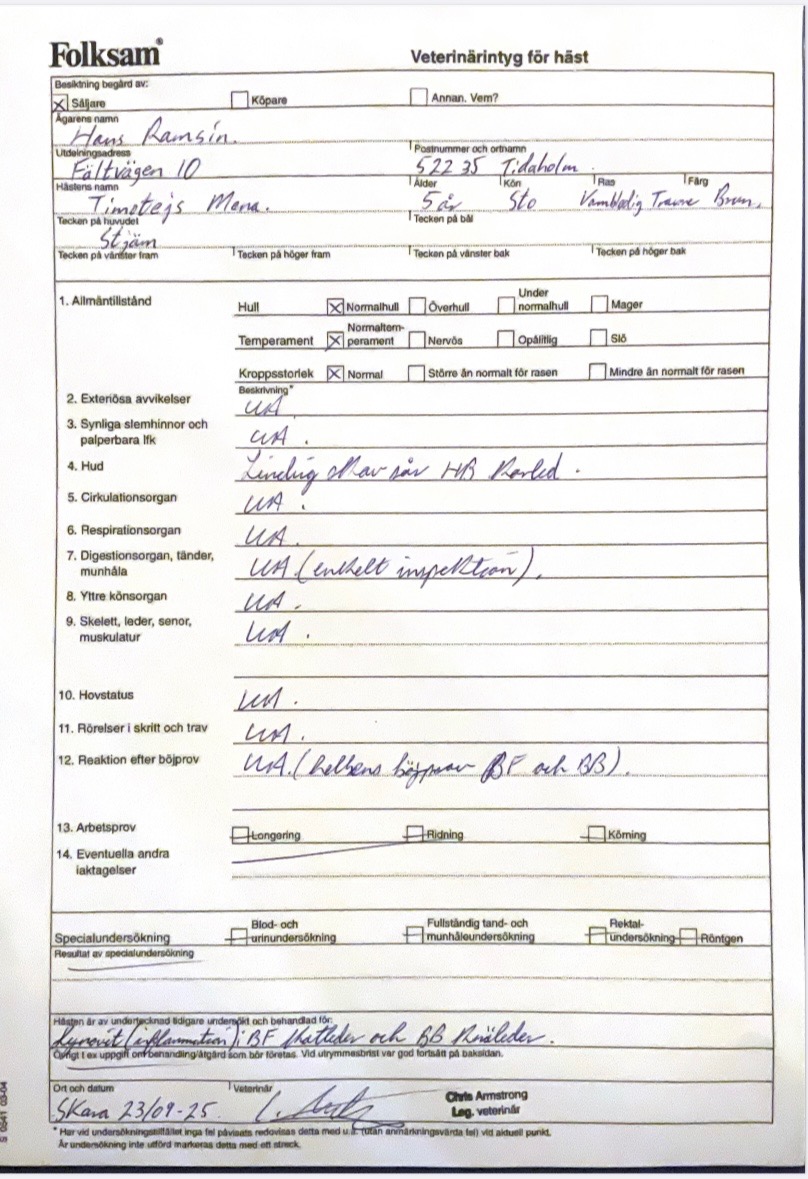 Folksam®
Veterinärintyg för häst
Besiktning begärd av:
Säljare Köpare Annan. Vem?
Ägarens namn
Hans Ramsin.
Utdelningsadress Postnummer och ortnamn
Fältvägen 10 522 35 Tidaholm
Hästens namn Ålder Kön Ras Färg
Timotejs Mena. 5 år Sto Varmblodig Travare Brun.
Tecken på huvudet Tecken på bål
Stjärn
Tecken på vänster fram Tecken på höger fram Tecken på vänster bak Tecken på höger bak
1. Allmäntillstånd Hull Normalhull Överhull Under normalhull Mager
Temperament Normaltemperament Nervös Opålitlig Slö
Kroppsstorlek Normal Större än normalt för rasen Mindre än normalt för rasen
Beskrivning*
2. Exteriösa avvikelser UA
3. Synliga slemhinnor och
palperbara lfk UA.
4. Hud Lindrig skav sår HB Karled.
5. Cirkulationsorgan UA.
6. Respirationsorgan UA.
7. Digestionsorgan, tänder,
munhåla UA. (enkelt inspektion).
8. Yttre könsorgan UA.
9. Skelett, leder, senor,
muskulatur UA.
10. Hovstatus UA.
11. Rörelser i skritt och trav UA.
12. Reaktion efter böjprov UA. (helbens böjprov BF och BB).
13. Arbetsprov Longering Ridning Körning
14. Eventuella andra
iaktagelser
Specialundersökning Blod- och urinundersökning Fullständig tand- och munhåleundersökning Rektal-undersökning Röntgen
Resultat av specialundersökning
Hästen är av undertecknad tidigare undersökt och behandlad för:
Synovit (inflammation) i BF Kotleder och BB Knäleder.
Övrigt t ex uppgift om behandling/åtgärd som bör företas. Vid utrymmesbrist var god fortsätt på baksidan.
Ort och datum Veterinär
Skara 23/09-25.
Chris Armstrong
Leg. veterinär
* Har vid undersökningstillfället inga fel påvisats redovisas detta med u.a. (utan anmärkningsvärda fel) vid aktuell punkt.
Är undersökning inte utförd markeras detta med ett streck.
S 0541 03-04